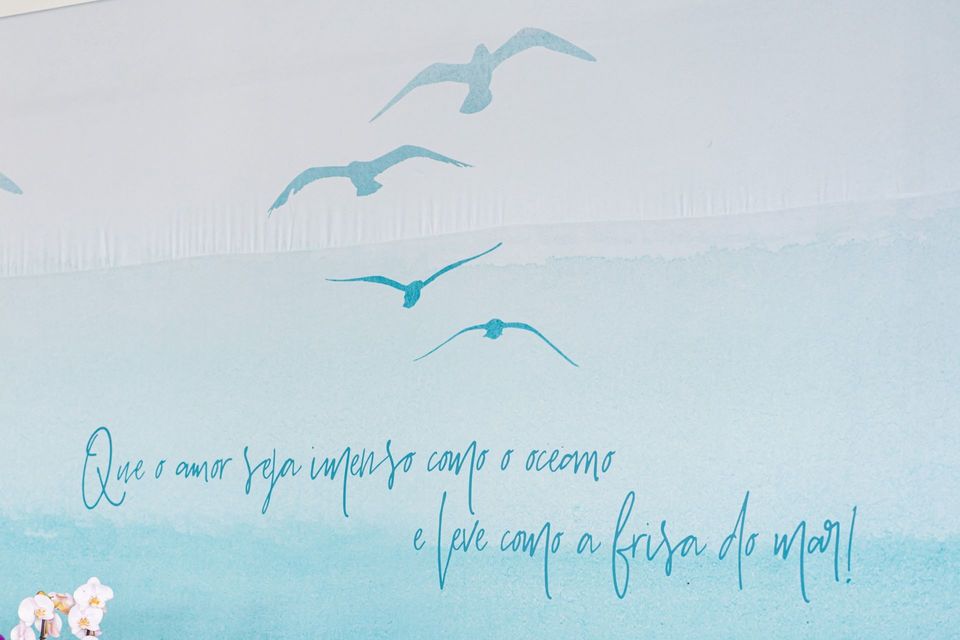 Que o amor seja imenso como o oceano
e leve como a frisa do mar!